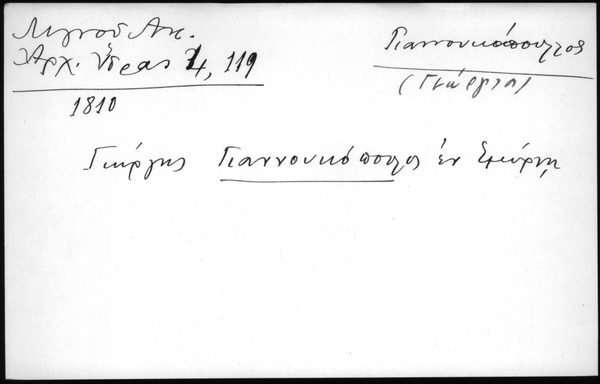 Λιγνοῦ Ἀντ.
Ἀρχ. Ὕδρας 4, 119
1810
Γιαννουκόπουλος
(Γιώργης)
Γιώργης Γιαννουκόπουλος ἐν Σμύρνῃ